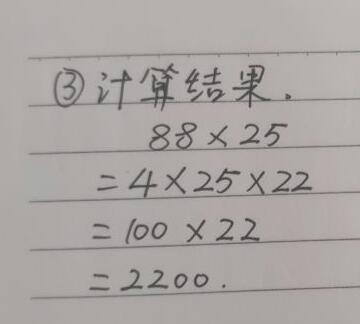 ③计算结果.
88×25
=4×25×22
=100×22
=2200.